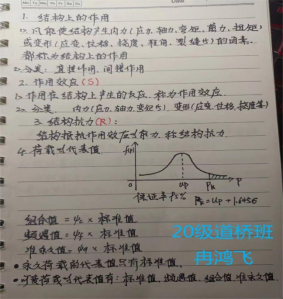 1. 结构上的作用
1> 凡能使结构产生内力(应力、轴力、弯矩、剪力、扭矩)
或变形(应变、位移、挠度、转角、裂缝等)的因素,
都称为结构上的作用
2> 分类: 直接作用、间接作用
2. 作用效应(S)
1> 作用在结构上产生的反应,称为作用效应
2> 分类 内力(应力、轴力、弯矩等) 变形(应变、位移、挠度等)
3. 结构抗力(R):
结构抵抗作用效应的能力,称结构抗力
4. 荷载的代表值
f(p)
0 μp Pk P
保证率95% Pk=μp+1.645σ
组合值 = × 标准值
频遇值 = × 标准值
准永久值 = × 标准值
永久荷载的代表值只有标准值
可变荷载的代表值有: 标准值、频遇值、组合值、准永久值
20级道桥班
冉鸿飞